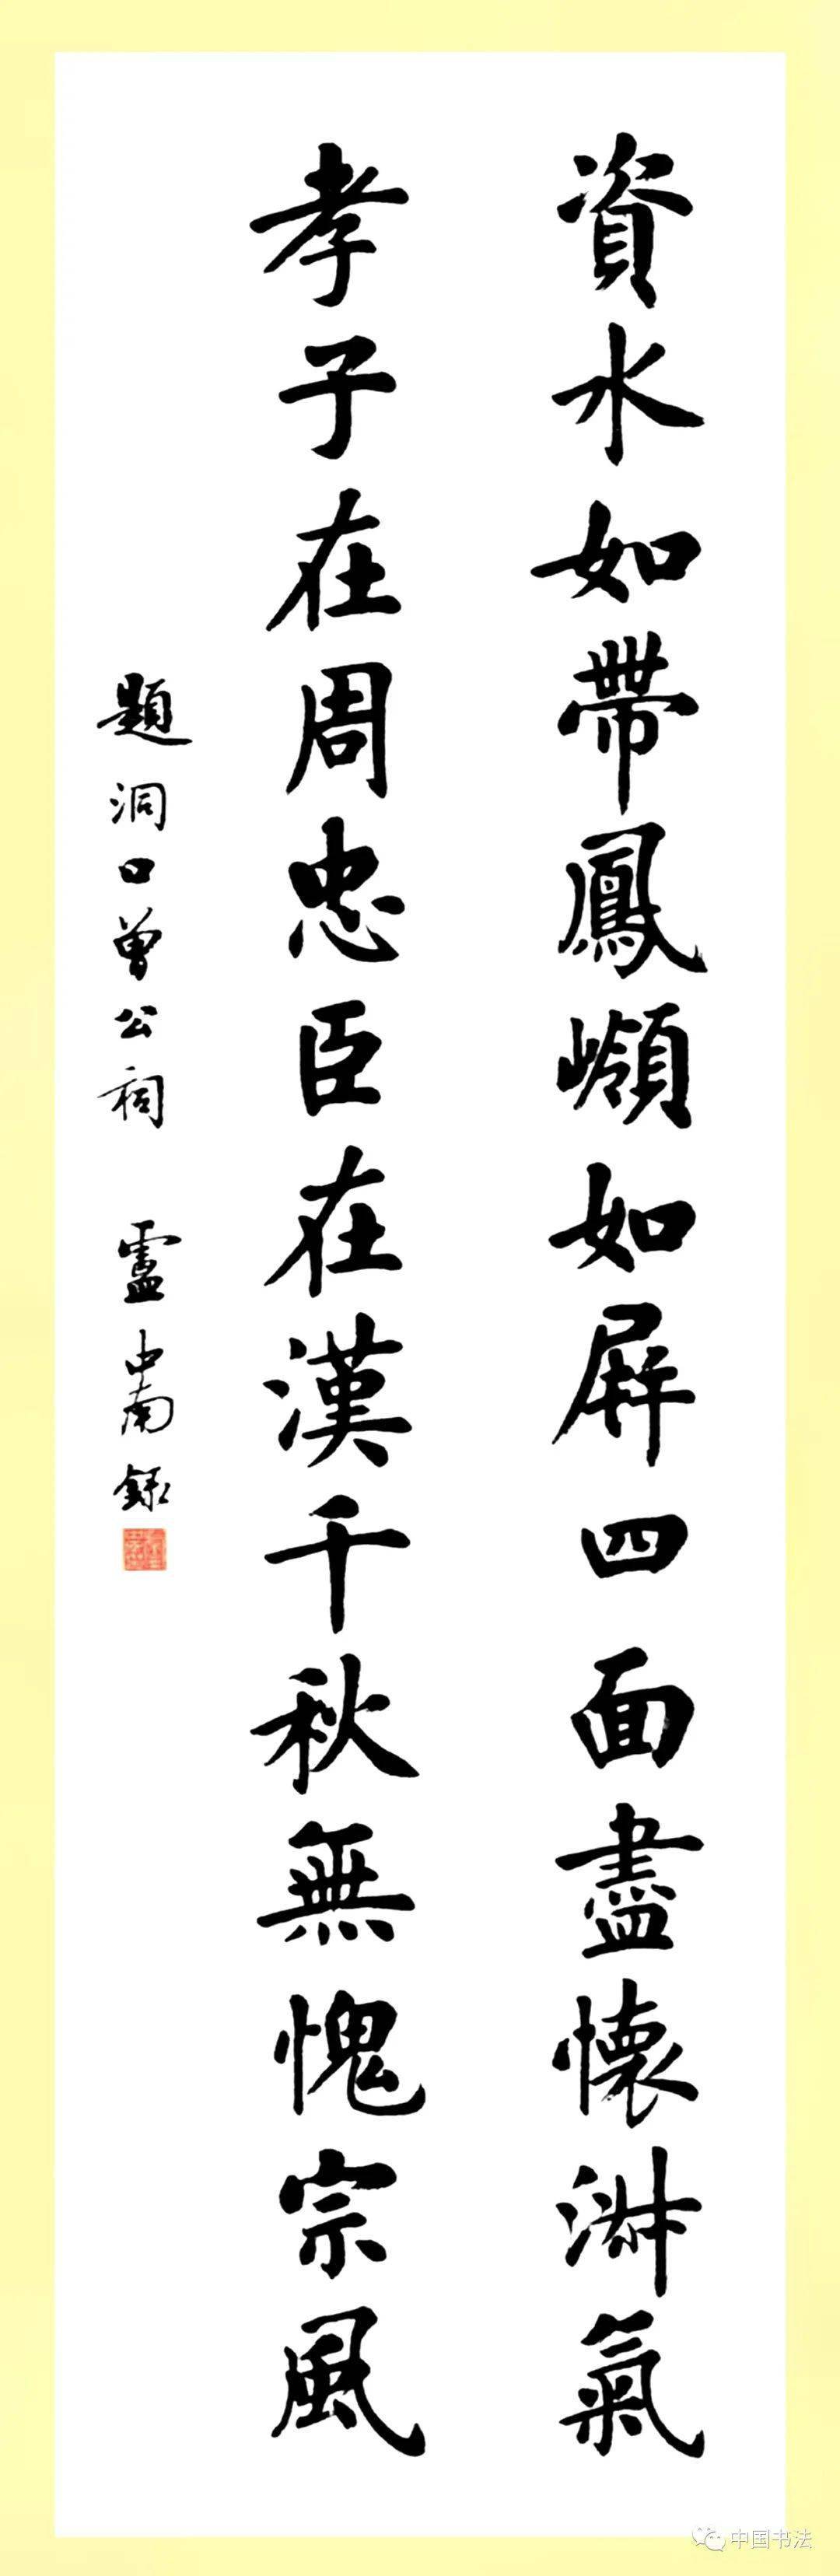 資水如帶鳳嶺如屏四面盡懷淑氣
孝子在周忠臣在漢千秋無愧宗風
題洞口曾公祠 盧中南錄
中国书法